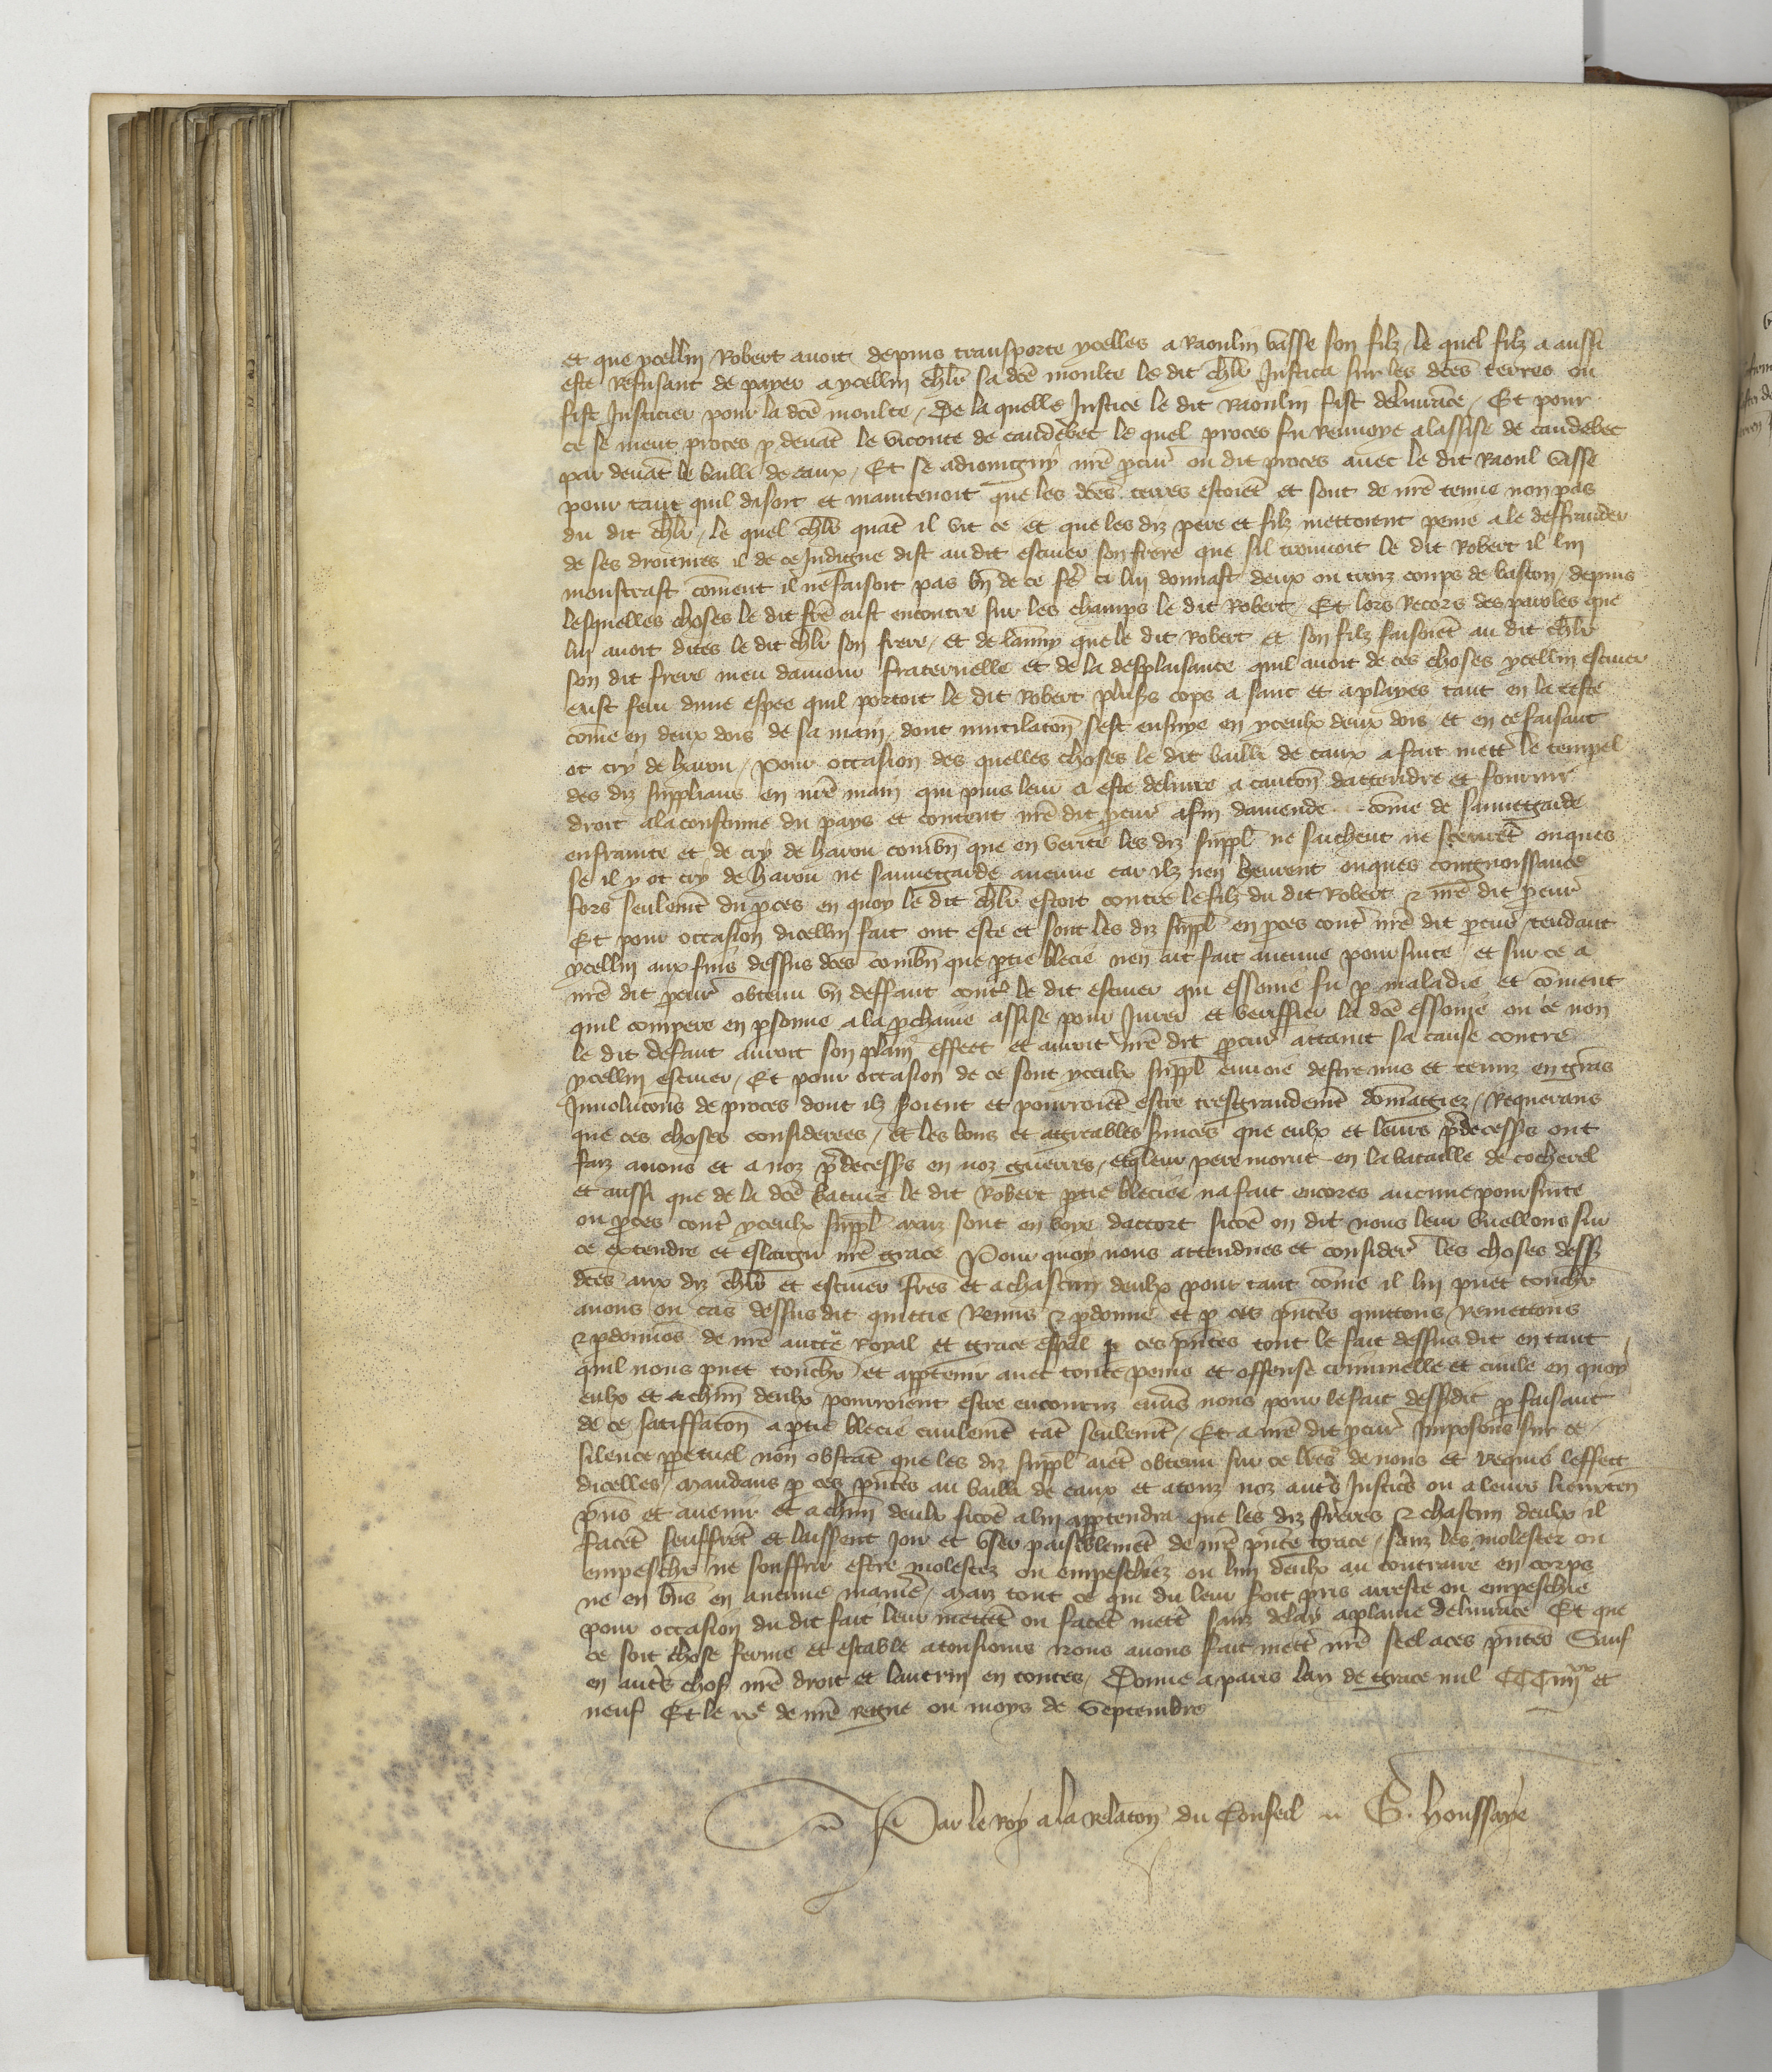 et que ycellui Robert avoit depuis transporte ycelles a Raoulin Vasse son filz / le quel filz a aussi
este refusant de payer a ycellui chlr sa dce moulte le dit chlr Justicia sur les dces terres ou
fist Justicier pour la dce moulte / De la quelle Justice le dit Raoulin fist delivrace / Et pour
ce se meut proces p devat le viconte de caudebec le quel proces fu renvoye alassise de caudebec
par devat le bailli de caux / Et se adjoingny nre pcur ou dit proces avec le dit Raoul Vasse
pour tant quil disoit et maintenoit que les dces terres estoiet et sont de nre tenue non pas
du dit chlr / le quel chlr quat il vit ce et que les diz pere et filz mettoient peine a le deffrauder
de ses droitures il de ce Indigne dist au dit escuier son frere que sil trouvoit le dit Robert il lui
monstrast coment il ne faisoit pas bn de ce fe et lui donnast deux ou troiz coups de baston / depuis
lesquelles choses le dit fre eust encontre sur les champs le dit Robert / Et lors Recors des paroles que
lui avoit dites le dit chlr son frere / et de lanuy que le dit Robert et son filz faisoiet au dit chlr
son dit frere meu damour fraternelle et de la desplaisance quil avoit de ces choses ycellui escuier
eust feru dune espee quil portoit le dit Robert plus's cops a sanc et a playes tant en la teste
come en deux dois de sa main / dont mutilaton sest ensuye en yceulx deux dois et en ce faisant
ot cry de harou / Pour occasion des quelles choses le dit bailli de caux a fait mett le tempel
des diz supplians en nre main qui puis leur a este delivre a cauton dattendre et fournir
droit ala coustume du pays et content nre dit pcur afin damende come de sauvegarde
enfrainte et de cry de harou combn que en verite les diz suppl ne saichent ne sceuret onques
se il y ot cry de harou ne sauvegarde aucune car ilz nen heurent onques congnoissance
fors seulemt du pces en quoy le dit chlr estoit contre le filz du dit Robert & nre dit pcur
Et pour occasion dicellui fait ont este et sont les diz suppl en pces cont nre dit pcur tendant
ycellui aux fins dessus dces combn que ptie blecie nen ait fait aucune poursuite / et sur ce a
nre dit pcur obtenu un deffaut cont le dit escuier qui essonie fu p maladie et coment
quil compere en psonne a la pchaine assise pour Jurer et veriffier la dce essonie ou ce non
le dit defaut auroit son plain effect et auroit nre dit pcur attaint sa cause contre
ycellui escuier / Et pour occasion de ce sont yceulx suppl en voie destre mis et tenuz en grans
Involucons de proces dont ilz soient et pourroiet estre tresgrandemt domagiez / Requerans
que ces choses considerees / et les bons et aggreables suices que eulx et leurs pdecesss ont
faiz a nous et a noz pdecesss en noz guerres / et que leur pere morut en la bataille de cocherel
et aussi que de la dce bature le dit Robert ptie bleciee na fait encores aucune poursuite
ou pces cont yceulx suppl maiz sont en voye daccort sicoe on dit nous leur vueillons sur
ce extendre et eslargir nre grace Pour quoy nous attendues et consider les choses dess
dces aux diz chlr et escuier fres et a chascun deulx pour tant come il lui puet toucher
avons ou cas dessus dit quittie Remis & pdonne et p ces pntes quittons remettons
& pdonnos de nre aucte Royal et grace espal p ces pntes tout le fait dessus dit en tant
quil nous puet toucher et apptenir avec toute peine et offense criminelle et civile en quoy
eulx et a chun deulx pourroient estre encouruz envs nous pour le fait dessdit p faisant
de ce satiffaton a ptie blecie civilemt tat seulemt / Et a nre dit pcur Imposons sur ce
silence ppetuel non obstat que les diz suppl aiet obtenu sur ce lres de nous et Requis leffect
dicelles / Mandans p ces pntes au bailli de caux et a touz noz auts Justics ou a leurs lieuxten
pns et avenir et a chun deulx sicoe a lui apptendra que les diz freres & chascun deulx il
facet seuffret et laissent Joir et user paisiblemet de nre pnte grace / sanz les molester ou
empescher ne souffrir estre molestez ou empeschiez ou lun deulx au contraire en corps
ne en bns en aucune manie / Maiz tout ce qui du leur soit pris arreste ou empeschie
pour occasion du dit fait leur mettet ou facet mett sanz delay a plaine delivrace Et que
ce soit chose ferme et estable a tousjours Nous avons fait mett nre seel a ces pntes Sauf
en auts chos nre droit et lautruy en toutes / Donne a paris lan de grace mil CCC iiii xx et
neuf Et le ixe de nre regne ou moys de Septembre
Par le Roy a la relaton du Conseil G. houssaye